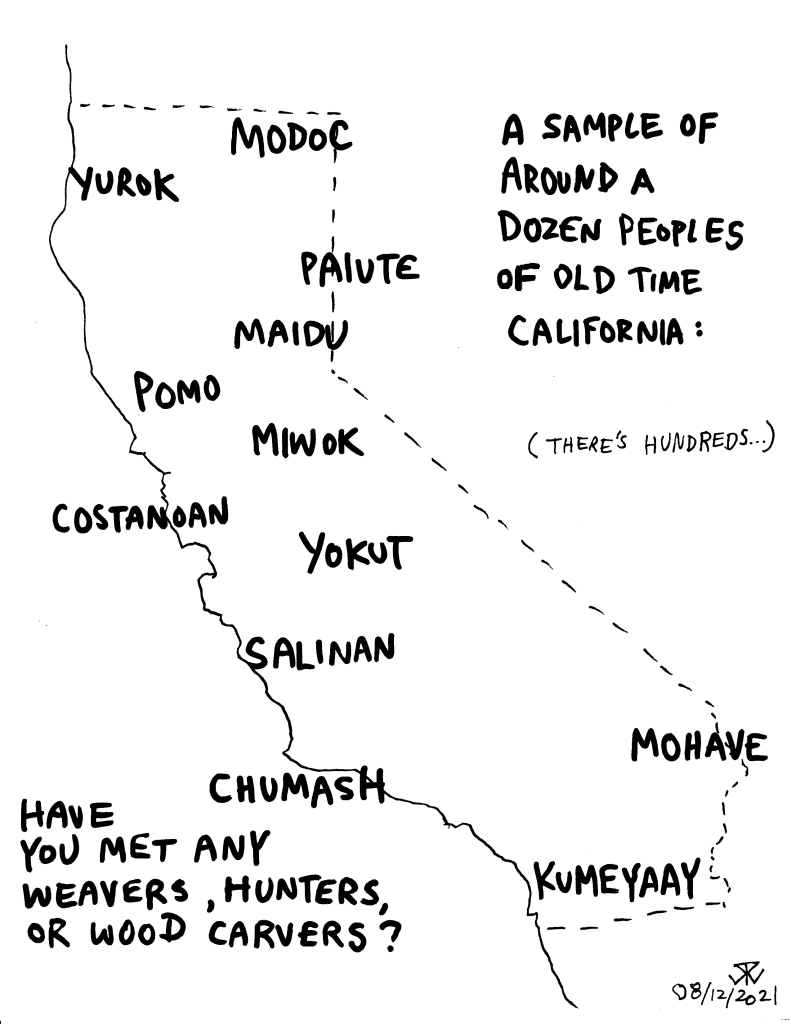 MODOC
YUROK
PAIUTE
MAIDU
POMO
MIWOK
COSTANOAN
YOKUT
SALINAN
MOHAVE
CHUMASH
KUMEYAAY
A SAMPLE OF
AROUND A
DOZEN PEOPLES
OF OLD TIME
CALIFORNIA:
(THERE'S HUNDREDS...)
HAVE
YOU MET ANY
WEAVERS, HUNTERS,
OR WOOD CARVERS?
08/12/2021